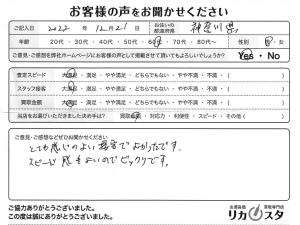 お客様の声をお聞かせください
ご記入日 2022 年 12 月 21 日 お住いの都道府県 神奈川県
年齢 20代・30代・40代・50代・60代・70代・80代～ 性別 男・女
ご意見・ご感想を弊社ホームページにお客様の声として掲載させて頂いてもよろしいでしょうか? Yes・No
査定スピード 大満足・満足・やや満足・どちらでもない・やや不満・不満
スタッフ接客 大満足・満足・やや満足・どちらでもない・やや不満・不満
買取金額 大満足・満足・やや満足・どちらでもない・やや不満・不満
当店をお選びいただきました決め手は? 買取金額・対応力・利便性・スピード・その他( )
ご意見・ご感想などぜひお聞かせください
とても感じのよい接客でよかったです。
スピード感もよいのでビックリです。
ご協力ありがとうございました。
この度は誠にありがとうございました。
お酒高価買取専門店
リカスタ